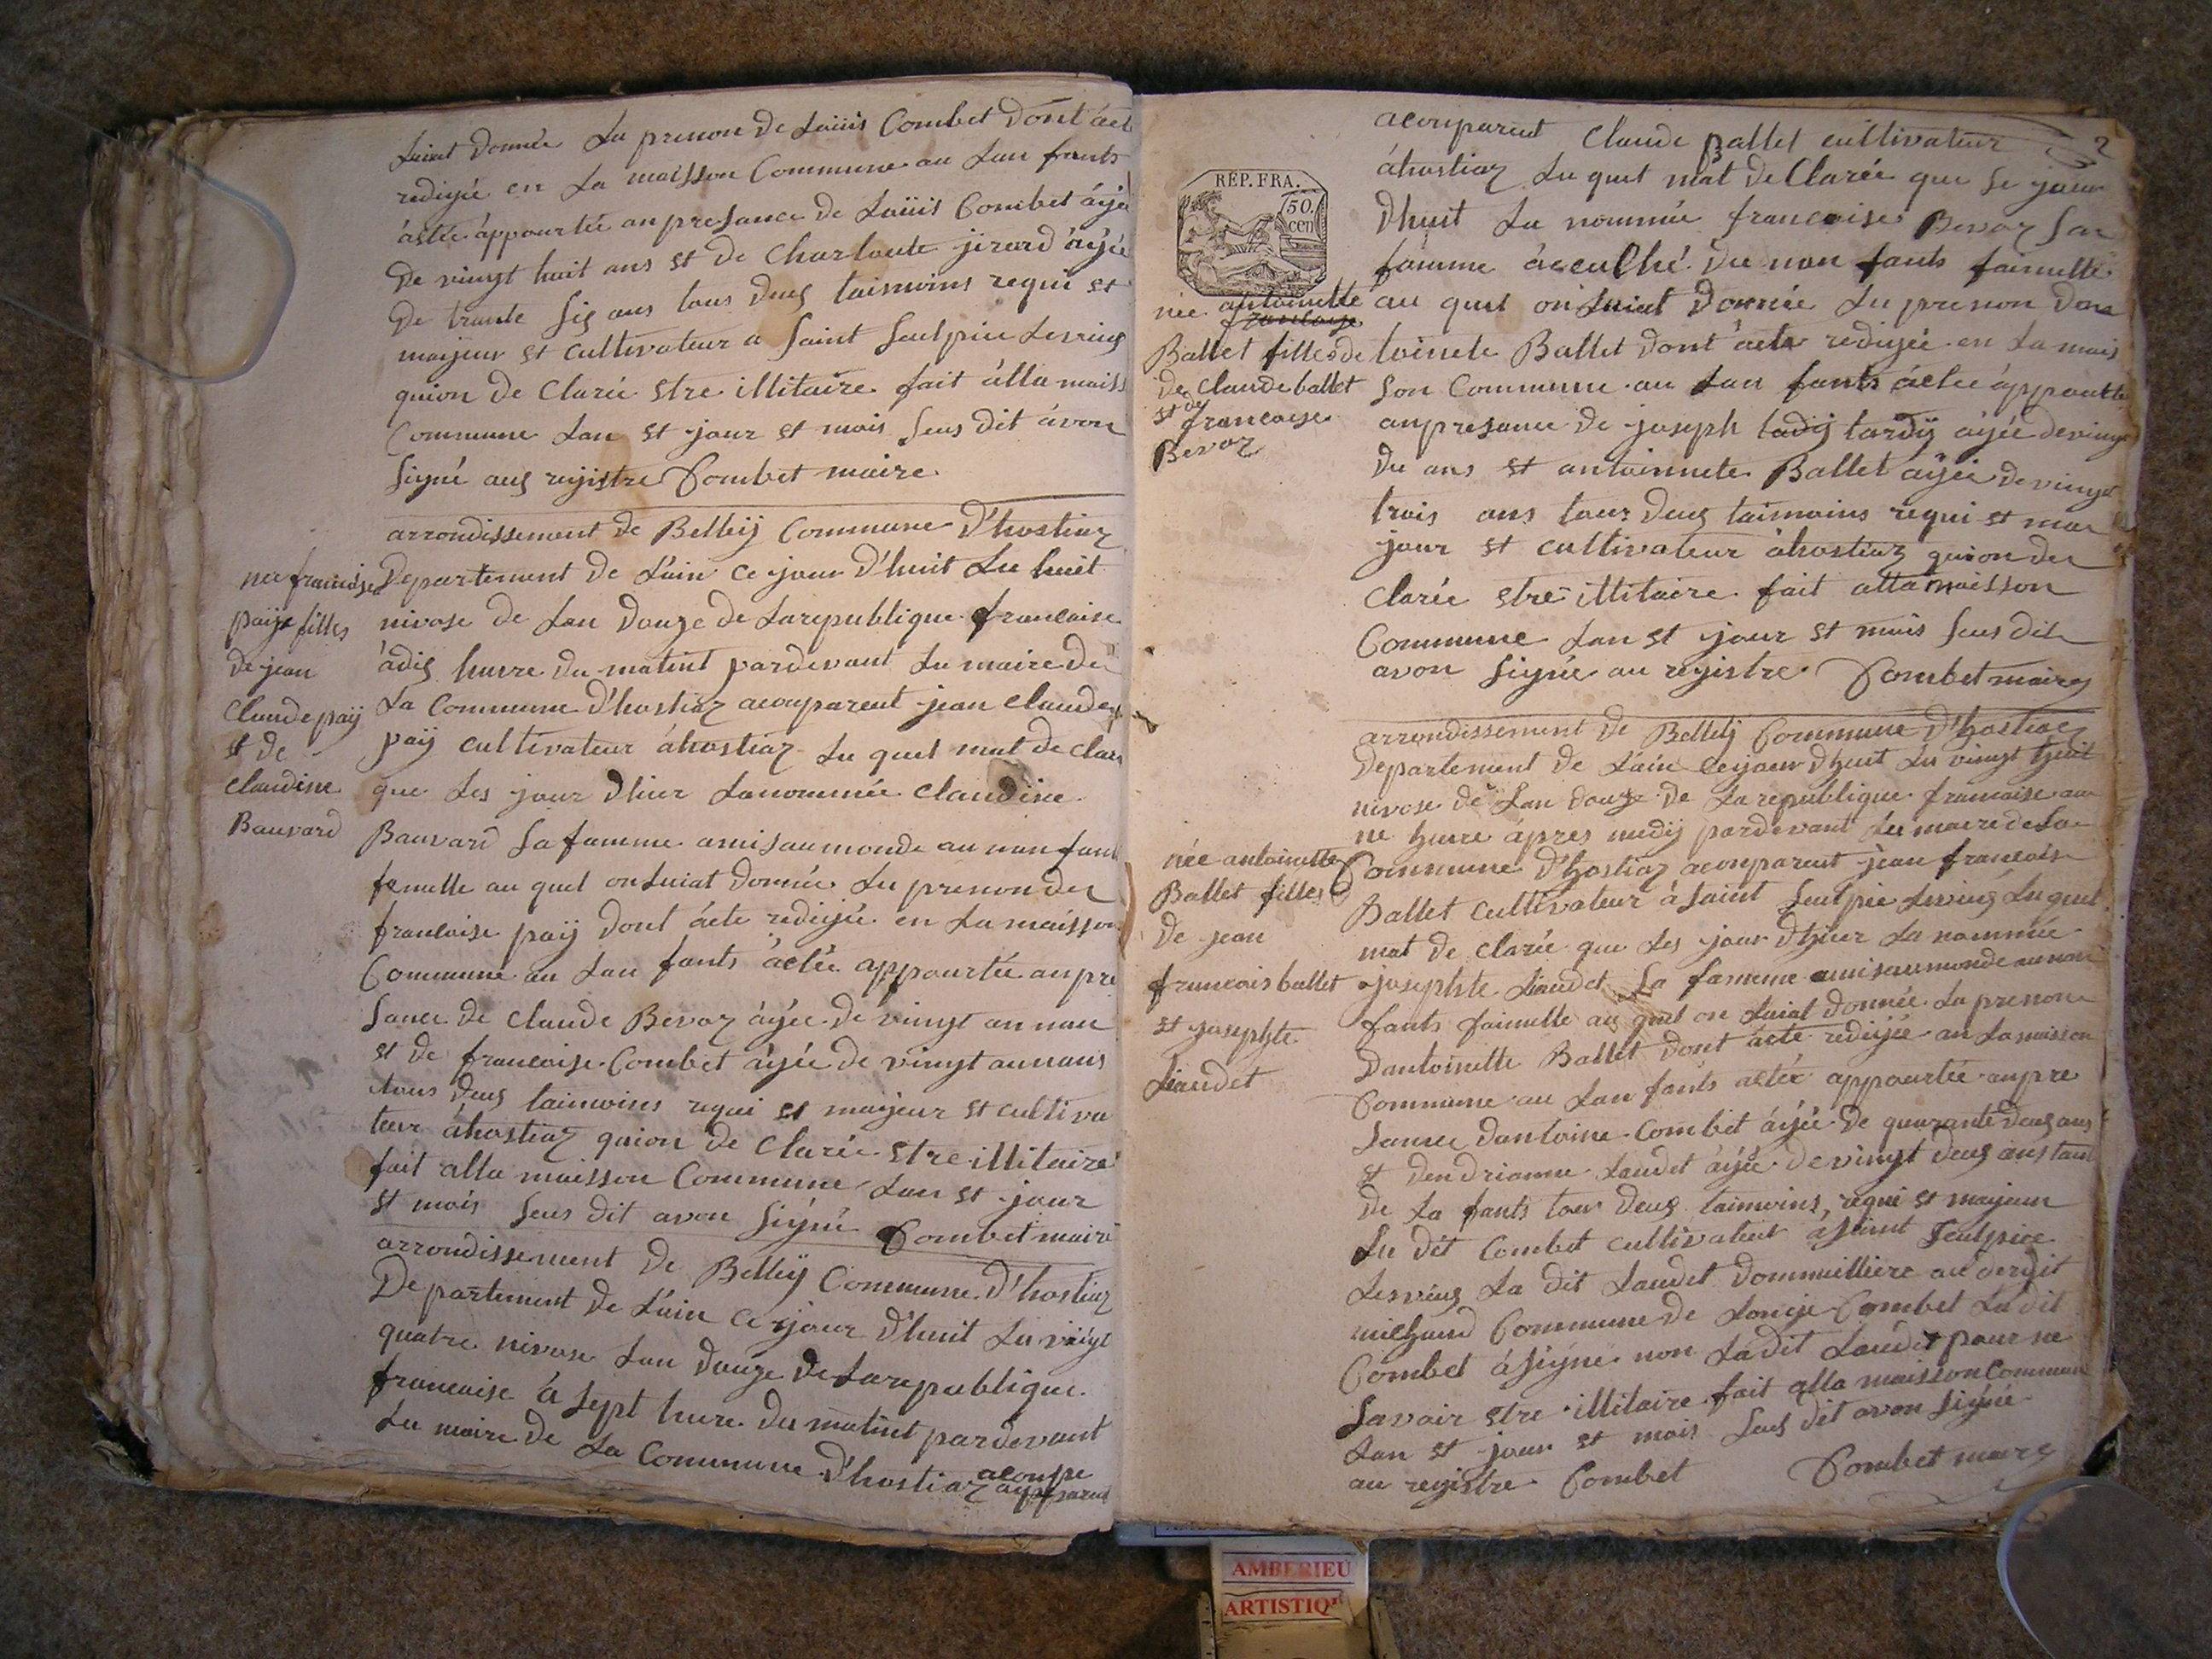 Luiat donnée Lu prenon de Laüis Combet dont áct
redigée en La maisson Commune au Lan fants
áctée áppourtée anpresance de Laüis Combet áyée
De vingt huit ans et de Charloute jirard áÿée
De trante sis ans tous deus taimoins requi et
maijeur et cultivateur a saint sulpice Levieus
quion de Clarée etre illitaire fait álla maiss
Commune Lan et jour et mois seus dit ávon
signé aus rejistre Combet maire
arrondissement de Belleÿ Commune d'hostiaz
nee francoise
paÿ filles
de jean
Claude paÿ
et de
claudine
Bauvard
Departement de L'ain ce jour d'huit Lu huit
nivose de Lan douze de Larepublique francaise
ádis heure du matint pardevant Lu maire de
La Commune d'hostiaz aconparent jean claude
paÿ cultivateur áhostiaz Lu quel mat de clare
que Les jour dhier Lanommée claudine
Bauvard sa famme amisaumonde au nan fant
femelle au quel onLuiat donnée Lu prenon de
francaise paÿ dont ácte redigée en La maisson
Commune au Lan fants áctée appourtée anpre
sance de claude Bevoz áyée de vingt au nan
et de francoise Combet áyée de vingt aunans
tous deus taimoins requi et maijeur et cultiva
teur áhostiaz quion de Clarée etre illitaire
fait alla maisson Commune Lan et jour
et mois seus dit avon signé Combet maire
arrondissement de Belleÿ Commune d'hostiaz
Departement de L'ain ce jour d'huit Lu vingt
quatre nivose Lan douze de Larepublique
francaise á sept heure du matint pardevant
Lu maire de La Commune d'hostiaz aconpe
apparent
2
aconparent Claude Ballet cultivateur
áhostiaz Lu quel mat de Clarée que se jour
dhuit La nommée francoise Bevoz sa
famme áccuché du nan fants faimelle
au quel on Luiat donnée Lu prenon dan
toinete Ballet dont ácte redigée en La mais
son Commune au Lan fants áctée áppourtée
anpresance de joseph tadij tardÿ áyée de vingt
du ans et antoinnete Ballet áyée de vingt
trois ans tous deus taimoins requi et ma
jeur et cultivateur áhostiaz quion de
Clarée etre illitaire fait alla maisson
Commune Lan et jour et mois seus dit
avon signée au rejistre Combet maire
REP. FRA.
50.
cen
nee antoinette
francoise
Ballet filles de
de Claude ballet
et de
francoise
Bevoz
arrondissement de Belleÿ Commune d'hostiaz
Departement de L'ain ce jour dhuit Lu vingt huit
nivose de Lan douze de La republique francaise au
ne heure ápres midÿ pardevant Lu maire de La
Commune d'hostiaz aconparent jean francois
Ballet cultivateur á saint sulpice Levieus Lu quel
mat de clarée que Les jour dhier La nommée
josephte Liaudet sa famme amisaumonde aunan
fants faimelle au quel on Luiat donnée La prenon
dantoinette Ballet dont ácte redigée an La maisson
Commune au Lan fants áctée appourtée anpre
sance dantoine Combet áyée de quarante deus ans
et dendrianne Laudet áyée de vingt deus ans tant
de La fants tous deus taimoins, requi et majeur
Lu dit Combet cultivateur á saint sulpice
Levieus La dit Laudet dommeilliere au dergit
milhand Commune de Longe Combet Ladit
Combet á signé non Ladit Laudet pour ne
savoir etre illitaire fait alla maisson Commune
Lan et jour et mois seus dit avon signé
au rejistre Combet Combet maire
née antoinette
Ballet filles
de jean
francois ballet
et josephte
Liaudet
AMBERIEU
ARTISTIQ